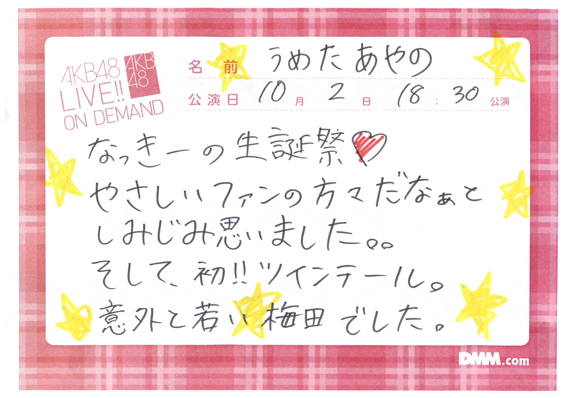 AKB48
LIVE!!
ON DEMAND
AKB
48
名前 うめたあやの
公演日 10月 2日 18:30公演
なっきーの生誕祭♡
やさしいファンの方々だなぁと
しみじみ思いました。。
そして、初!!ツインテール。
意外と若い梅田でした。
DMM.com